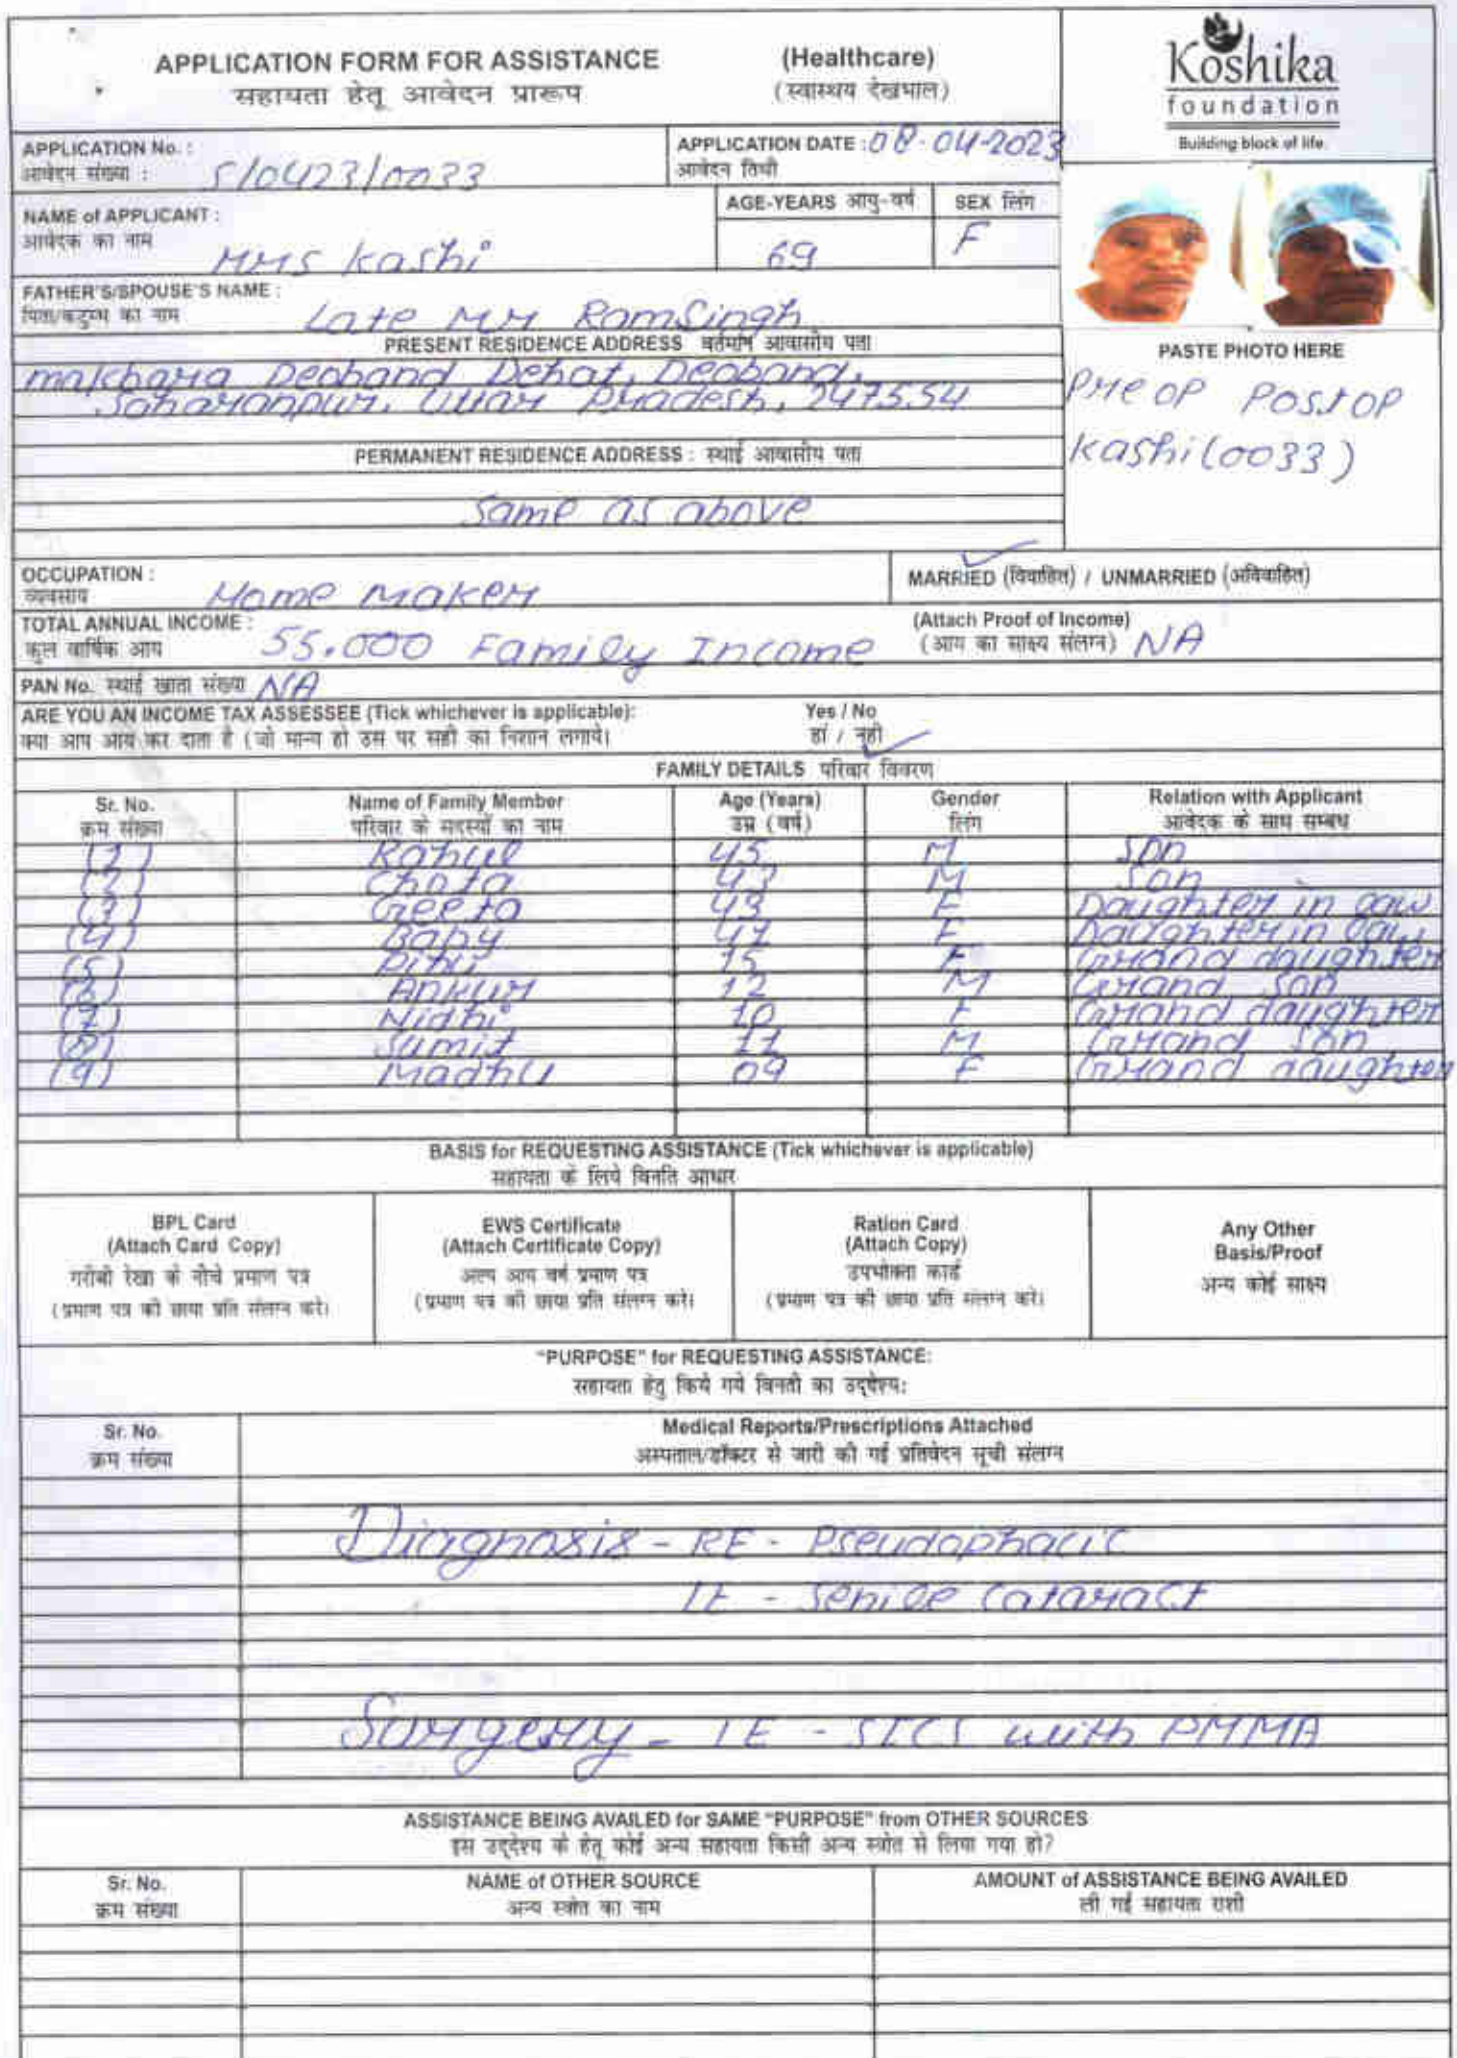 APPLICATION FORM FOR ASSISTANCE (Healthcare)
सहायता हेतू आवेदन प्रारूप (स्वास्थय देखभाल)
Koshika
foundation
Building block of life
APPLICATION No. :
आवेदन संख्या : S/0423/0033
APPLICATION DATE : 08-04-2023
आवेदन तिथी
NAME of APPLICANT :
आवेदक का नाम Mrs Kashi
AGE-YEARS आयु-वर्ष 69
SEX लिंग F
FATHER'S/SPOUSE'S NAME :
पिता/कटुम्ब का नाम Late Mr RamSingh
PRESENT RESIDENCE ADDRESS वर्तमान आवासीय पता
makbara Deoband Dehat, Deoband,
Saharanpur, Uttar Pradesh, 247554
PASTE PHOTO HERE
Pre OP Post OP
Kashi (0033)
PERMANENT RESIDENCE ADDRESS : स्थाई आवासीय पता
Same as above
OCCUPATION :
व्यवसाय Home maker
MARRIED (विवाहित) / UNMARRIED (अविवाहित)
TOTAL ANNUAL INCOME :
कुल वार्षिक आय 55,000 Family Income
(Attach Proof of Income)
(आय का साक्ष्य संलग्न) NA
PAN No. स्थाई खाता संख्या NA
ARE YOU AN INCOME TAX ASSESSEE (Tick whichever is applicable): Yes / No
क्या आप आय कर दाता है (जो मान्य हो उस पर सही का निशान लगाये। हां / नही
FAMILY DETAILS परिवार विवरण
Sr. No. Name of Family Member Age (Years) Gender Relation with Applicant
क्रम संख्या परिवार के सदस्यों का नाम उम्र (वर्ष) लिंग आवेदक के साथ सम्बध
(1) Rahul 45 M Son
(2) Chota M Son
(3) Geeta 43 F Daughter in law
(4) Baby F Daughter in law
(5) 15 F Grand daughter
(6) Ankur 12 M Grand son
(7) Nidhi 10 F Grand daughter
(8) Sumit 11 M Grand son
(9) Madhu 09 F Grand daughter
BASIS for REQUESTING ASSISTANCE (Tick whichever is applicable)
सहायता के लिये विनति आधार
BPL Card
(Attach Card Copy)
गरीबी रेखा के नीचे प्रमाण पत्र
(प्रमाण पत्र की छाया प्रति संलग्न करे।
EWS Certificate
(Attach Certificate Copy)
अल्प आय वर्ग प्रमाण पत्र
(प्रमाण पत्र की छाया प्रति संलग्न करे।
Ration Card
(Attach Copy)
उपभोक्ता कार्ड
(प्रमाण पत्र की छाया प्रति संलग्न करे।
Any Other
Basis/Proof
अन्य कोई साक्ष्य
"PURPOSE" for REQUESTING ASSISTANCE:
सहायता हेतु किये गये विनती का उद्देश्य:
Sr. No. Medical Reports/Prescriptions Attached
क्रम संख्या अस्पताल/डॉक्टर से जारी की गई प्रतिवेदन सूची संलग्न
Diagnosis - RE - Pseudophacic
LE - Senile Cataract
Surgery - LE - SICS with PMMA
ASSISTANCE BEING AVAILED for SAME "PURPOSE" from OTHER SOURCES
इस उद्देश्य के हेतू कोई अन्य सहायता किसी अन्य स्त्रोत से लिया गया हो?
Sr. No. NAME of OTHER SOURCE AMOUNT of ASSISTANCE BEING AVAILED
क्रम संख्या अन्य स्त्रोत का नाम ली गई सहायता राशी